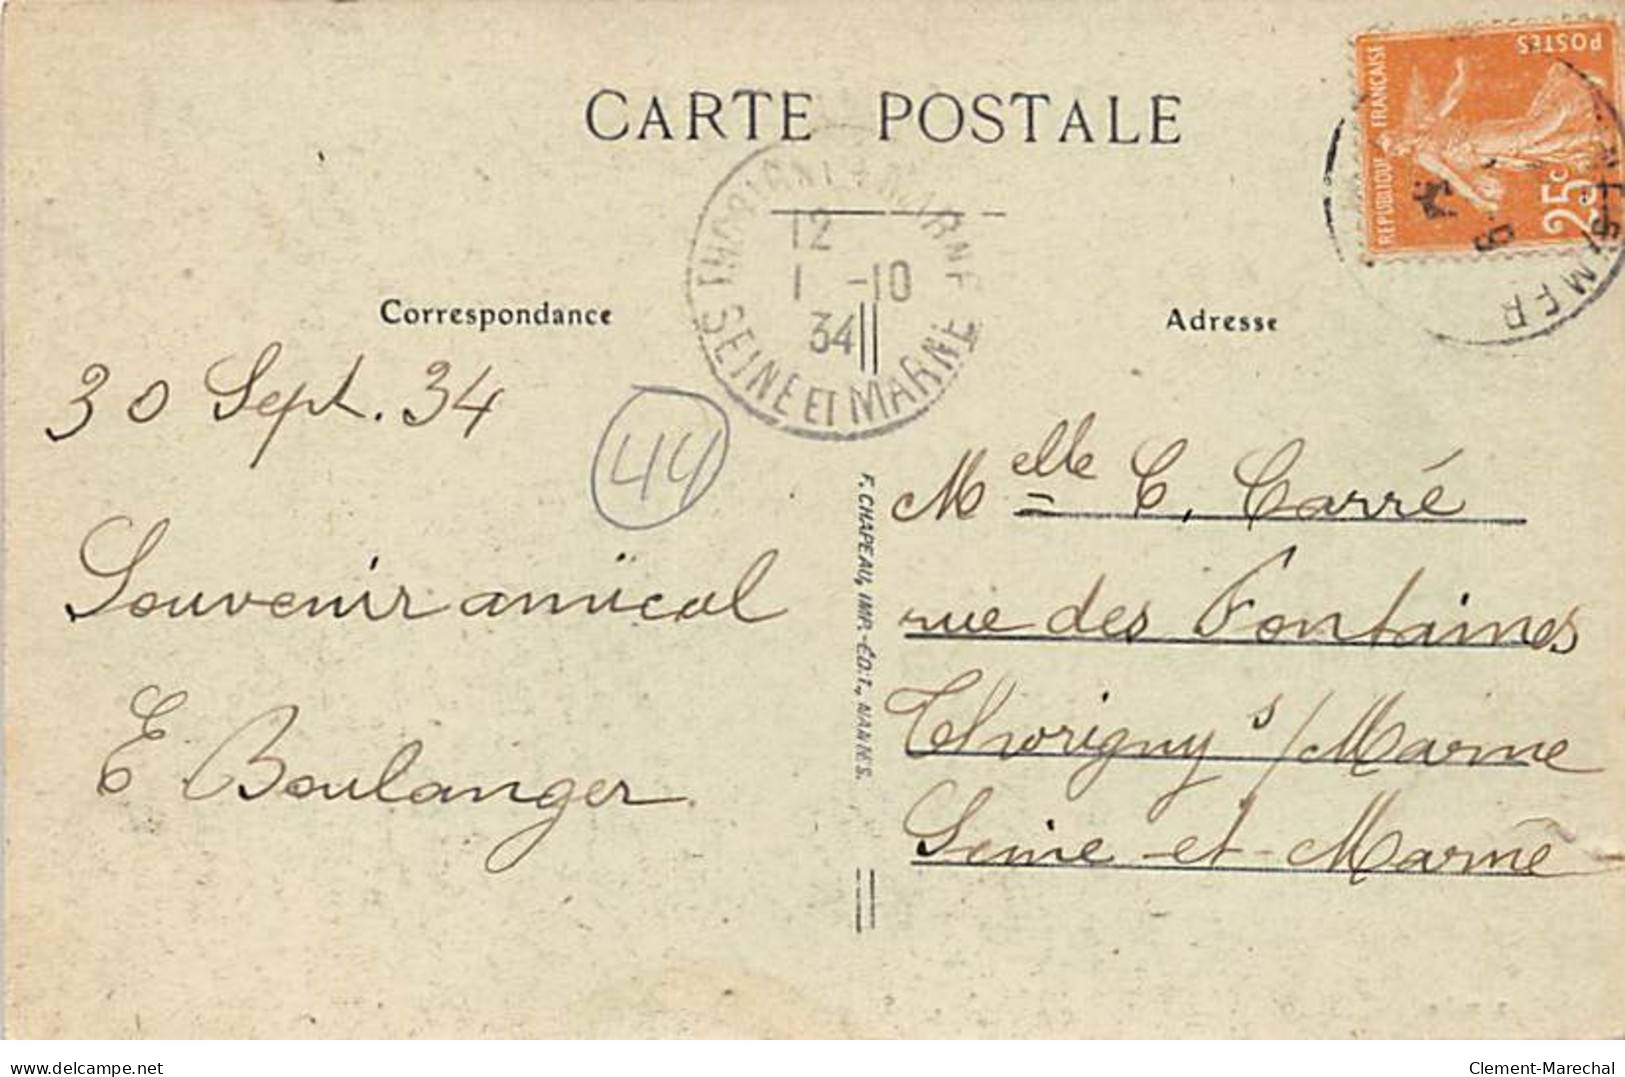 CARTE POSTALE
POSTES
REPUBLIQUE FRANÇAISE
25c
THORIGNY S MARNE
12
1 -10
34
SEINE ET MARNE
Correspondance
Adresse
30 Sept. 34
44
Souvenir amical
E Boulanger
F. CHAPEAU, IMP.-ÉDIT., NANTES.
Melle C. Carré
rue des Fontaines
Thorigny s/Marne
Seine-et-Marne
delcampe.net
Clement-Marechal